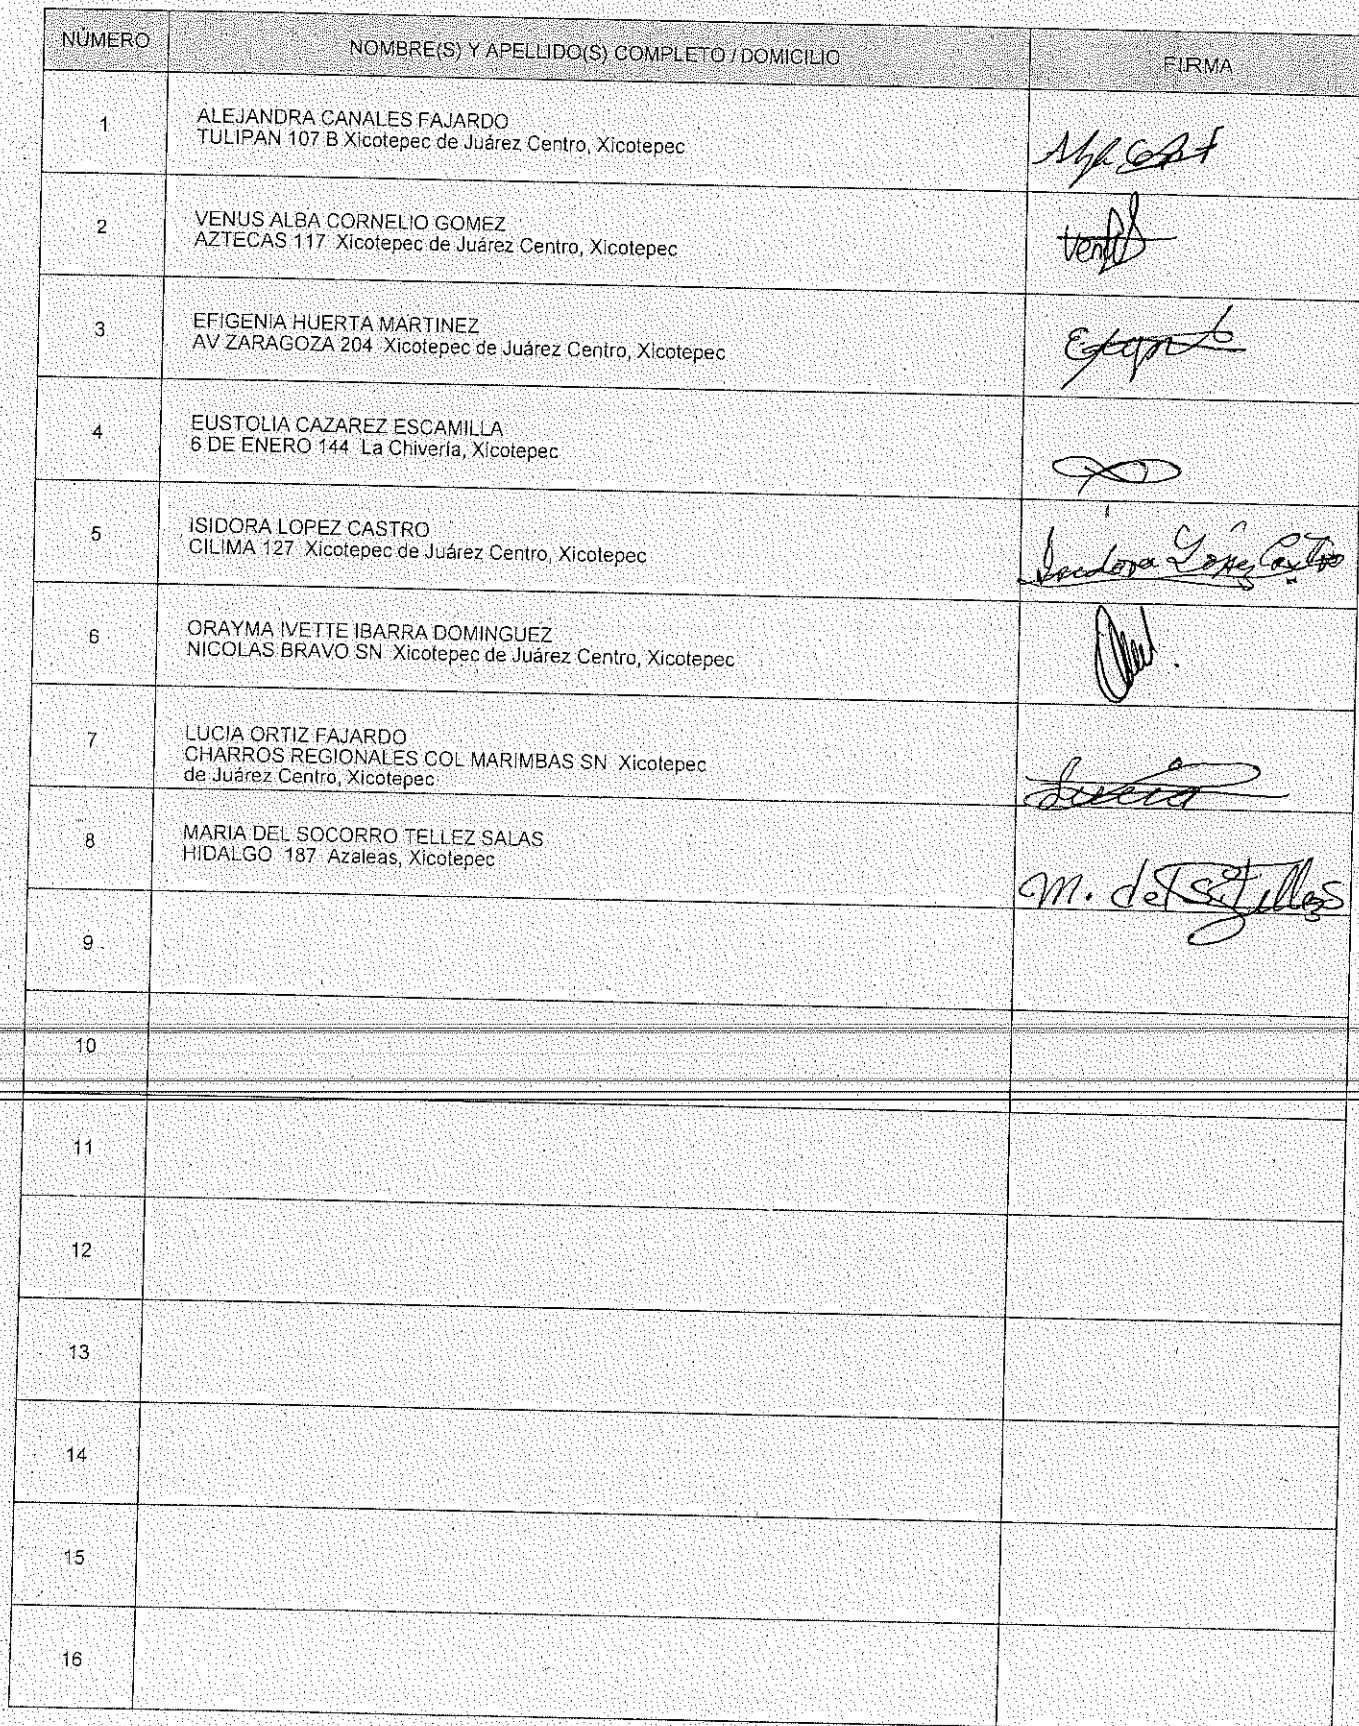 NÚMERO NOMBRE(S) Y APELLIDO(S) COMPLETO / DOMICILIO FIRMA
1 ALEJANDRA CANALES FAJARDO
TULIPAN 107 B Xicotepec de Juárez Centro, Xicotepec
2 VENUS ALBA CORNELIO GOMEZ
AZTECAS 117 Xicotepec de Juárez Centro, Xicotepec
3 EFIGENIA HUERTA MARTINEZ
AV ZARAGOZA 204 Xicotepec de Juárez Centro, Xicotepec
4 EUSTOLIA CAZAREZ ESCAMILLA
6 DE ENERO 144 La Chivería, Xicotepec
5 ISIDORA LOPEZ CASTRO
CILIMA 127 Xicotepec de Juárez Centro, Xicotepec
Isidora López Castro
6 ORAYMA IVETTE IBARRA DOMINGUEZ
NICOLAS BRAVO SN Xicotepec de Juárez Centro, Xicotepec
7 LUCIA ORTIZ FAJARDO
CHARROS REGIONALES COL MARIMBAS SN Xicotepec
de Juárez Centro, Xicotepec
Lucia
8 MARIA DEL SOCORRO TELLEZ SALAS
HIDALGO 187 Azaleas, Xicotepec
M. del S. Tellez S
9
10
11
12
13
14
15
16